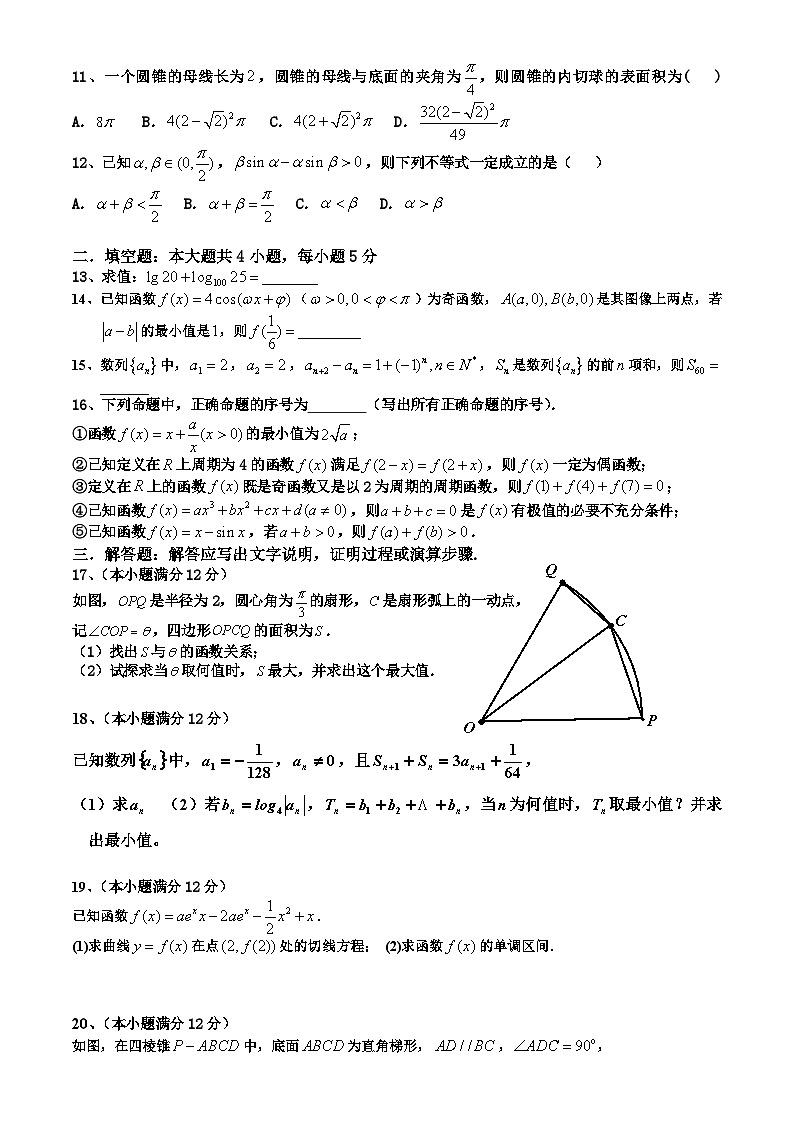 11、一个圆锥的母线长为2，圆锥的母线与底面的夹角为π/4，则圆锥的内切球的表面积为(  )
A. 8π  B. 4(2−√2)²π  C. 4(2+√2)²π  D. 32(2−√2)²/49 π
12、已知α,β∈(0,π/2)，βsinα−αsinβ>0，则下列不等式一定成立的是（  ）
A. α+β<π/2  B. α+β=π/2  C. α<β  D. α>β
二．填空题：本大题共4小题，每小题5分
13、求值：lg20+log₁₀₀25=________
14、已知函数f(x)=4cos(ωx+φ)（ω>0,0<φ<π）为奇函数，A(a,0),B(b,0)是其图像上两点，若
|a−b|的最小值是1，则f(1/6)=_________
15、数列{aₙ}中，a₁=2，a₂=2，aₙ₊₂−aₙ=1+(−1)ⁿ,n∈N*，Sₙ是数列{aₙ}的前n项和，则S₆₀=
________
16、下列命题中，正确命题的序号为________（写出所有正确命题的序号）.
①函数f(x)=x+a/x(x>0)的最小值为2√a；
②已知定义在R上周期为4的函数f(x)满足f(2−x)=f(2+x)，则f(x)一定为偶函数；
③定义在R上的函数f(x)既是奇函数又是以2为周期的周期函数，则f(1)+f(4)+f(7)=0；
④已知函数f(x)=ax³+bx²+cx+d(a≠0)，则a+b+c=0是f(x)有极值的必要不充分条件；
⑤已知函数f(x)=x−sinx，若a+b>0，则f(a)+f(b)>0.
三．解答题：解答应写出文字说明，证明过程或演算步骤.
17、（本小题满分12分）
如图，OPQ是半径为2，圆心角为π/3的扇形，C是扇形弧上的一动点，
记∠COP=θ，四边形OPCQ的面积为S.
（1）找出S与θ的函数关系；
（2）试探求当θ取何值时，S最大，并求出这个最大值.
Q
C
O
P
18、（本小题满分12分）
已知数列{aₙ}中，a₁=−1/128，aₙ≠0，且Sₙ₊₁+Sₙ=3aₙ₊₁+1/64，
（1）求aₙ  （2）若bₙ=log₄|aₙ|，Tₙ=b₁+b₂+Λ+bₙ，当n为何值时，Tₙ取最小值？并求
出最小值。
19、（本小题满分12分）
已知函数f(x)=aeˣx−2aeˣ−1/2x²+x.
(1)求曲线y=f(x)在点(2,f(2))处的切线方程； (2)求函数f(x)的单调区间.
20、（本小题满分12分）
如图，在四棱锥P−ABCD中，底面ABCD为直角梯形，AD//BC，∠ADC=90°，